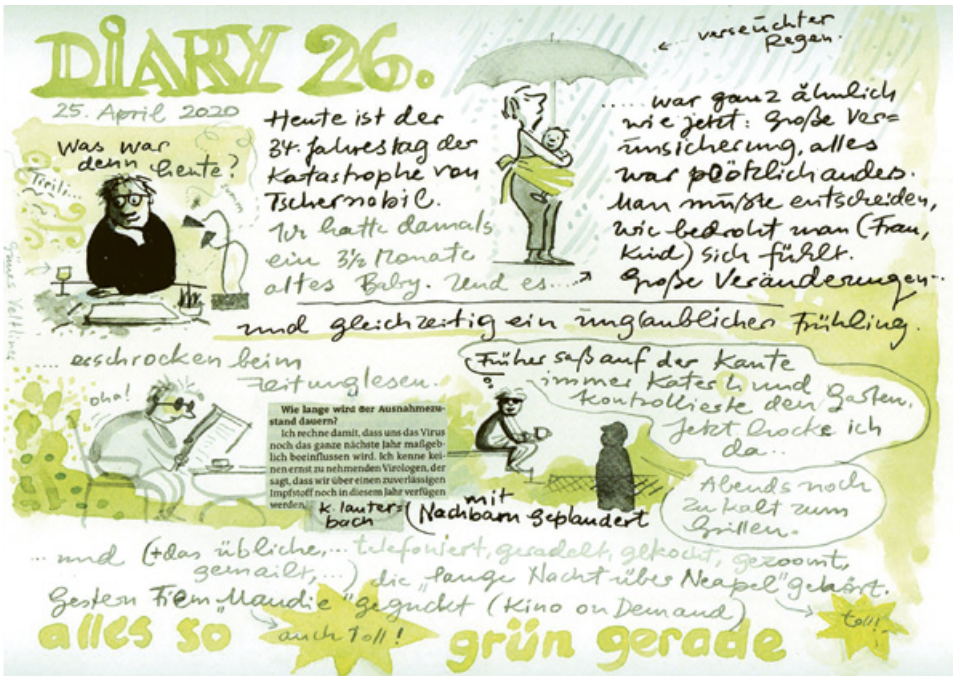 DIARY 26.
25. April 2020
Was war
denn heute?
Tirili...
summ
Grüner Veltliner
Heute ist der
34. Jahrestag der
Katastrophe von
Tschernobil.
Wir hatte damals
ein 3½ Monate
altes Baby. Und es...
verseuchter
Regen.
..... war ganz ähnlich
wie jetzt: Große Ver=
unsicherung, alles
war plötzlich anders.
Man mußte entscheiden,
wie bedroht man (Frau,
Kind) sich fühlt.
Große Veränderungen...
und gleichzeitig ein unglaublicher Frühling.
.... erschrocken beim
Zeitunglesen.
oha!
Wie lange wird der Ausnahmezu-
stand dauern?
Ich rechne damit, dass uns das Virus
noch das ganze nächste Jahr maßgeb-
lich beeinflussen wird. Ich kenne kei-
nen ernst zu nehmenden Virologen, der
sagt, dass wir über einen zuverlässigen
Impfstoff noch in diesem Jahr verfügen
werden.
K. Lauter=
bach
Früher saß auf der Kante
immer Kater L. und
kontrollierte den Garten.
Jetzt hocke ich
da...
mit
Nachbarn geplaudert
Abends noch
zu kalt zum
Grillen.
... und (+das übliche,... telefoniert, geradelt, gekocht, gezoomt,
gemailt,...) die "Lange Nacht über Neapel" gehört.
Gestern Film "Maudie" geguckt (Kino on Demand)
auch toll!
toll!
alles so grün gerade